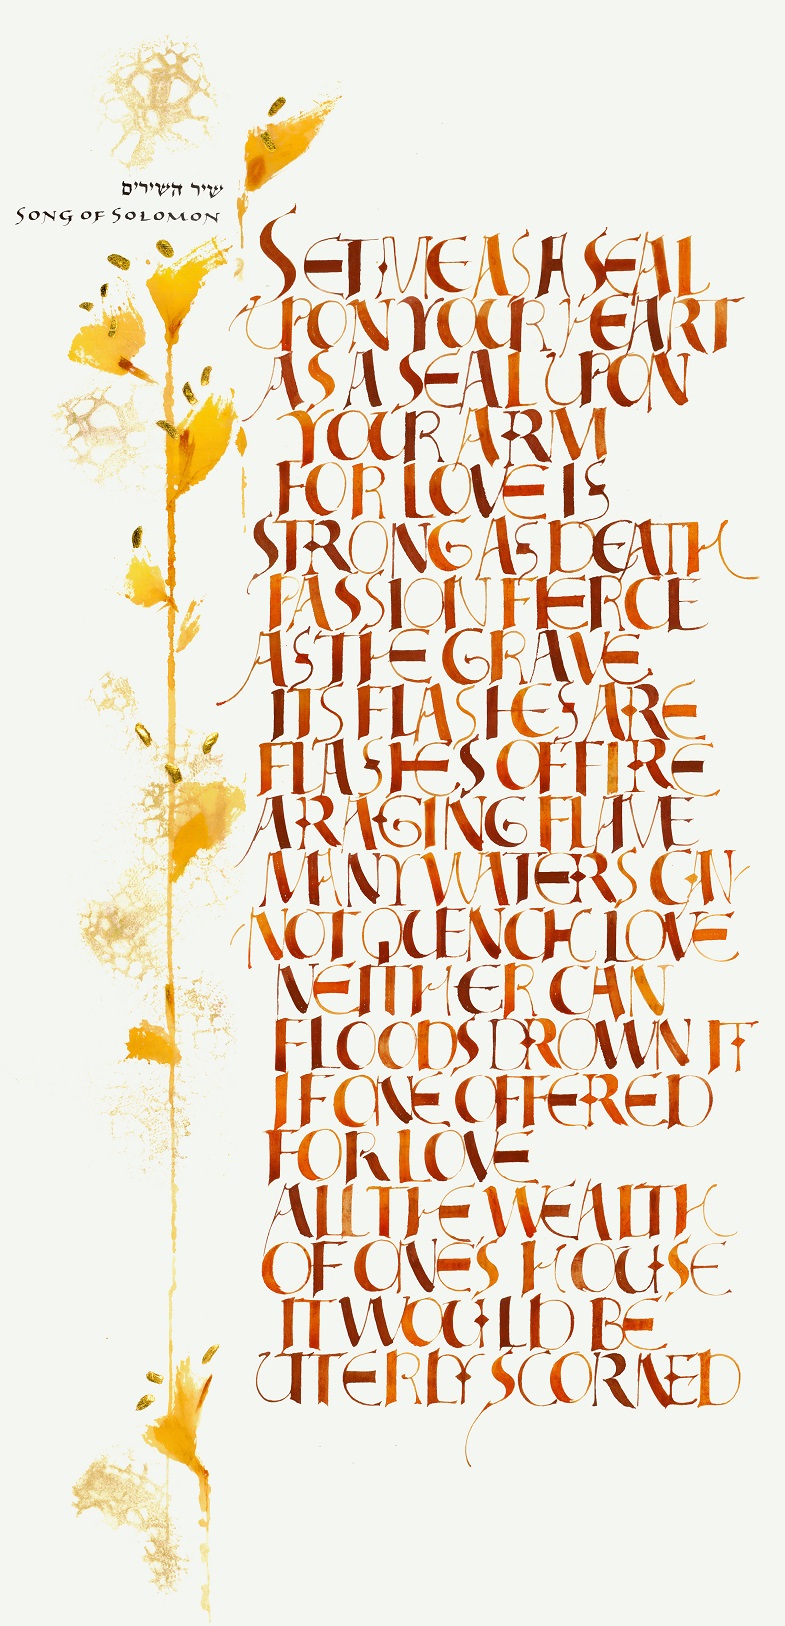 שיר השירים
SONG OF SOLOMON
SET ME AS A SEAL
UPON YOUR HEART
AS A SEAL UPON
YOUR ARM
FOR LOVE IS
STRONG AS DEATH
PASSION FIERCE
AS THE GRAVE
ITS FLASHES ARE
FLASHES OF FIRE
A RAGING FLAME
MANY WATERS CAN-
NOT QUENCH LOVE
NEITHER CAN
FLOODS DROWN IT
IF ONE OFFERED
FOR LOVE
ALL THE WEALTH
OF ONE'S HOUSE
IT WOULD BE
UTTERLY SCORNED